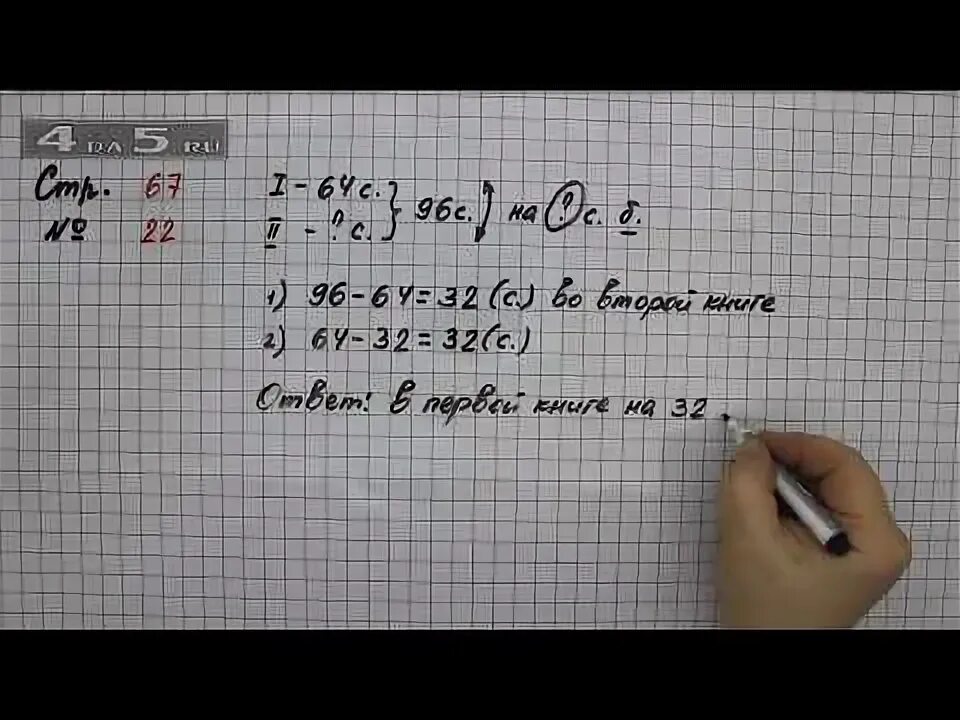 4 на 5 RU
Стр. 67
№ 22
I - 64 с. } 96 с. на ? с. б.
II - ? с.
1) 96 - 64 = 32 (с.) во второй книге
2) 64 - 32 = 32 (с.)
Ответ: в первой книге на 32